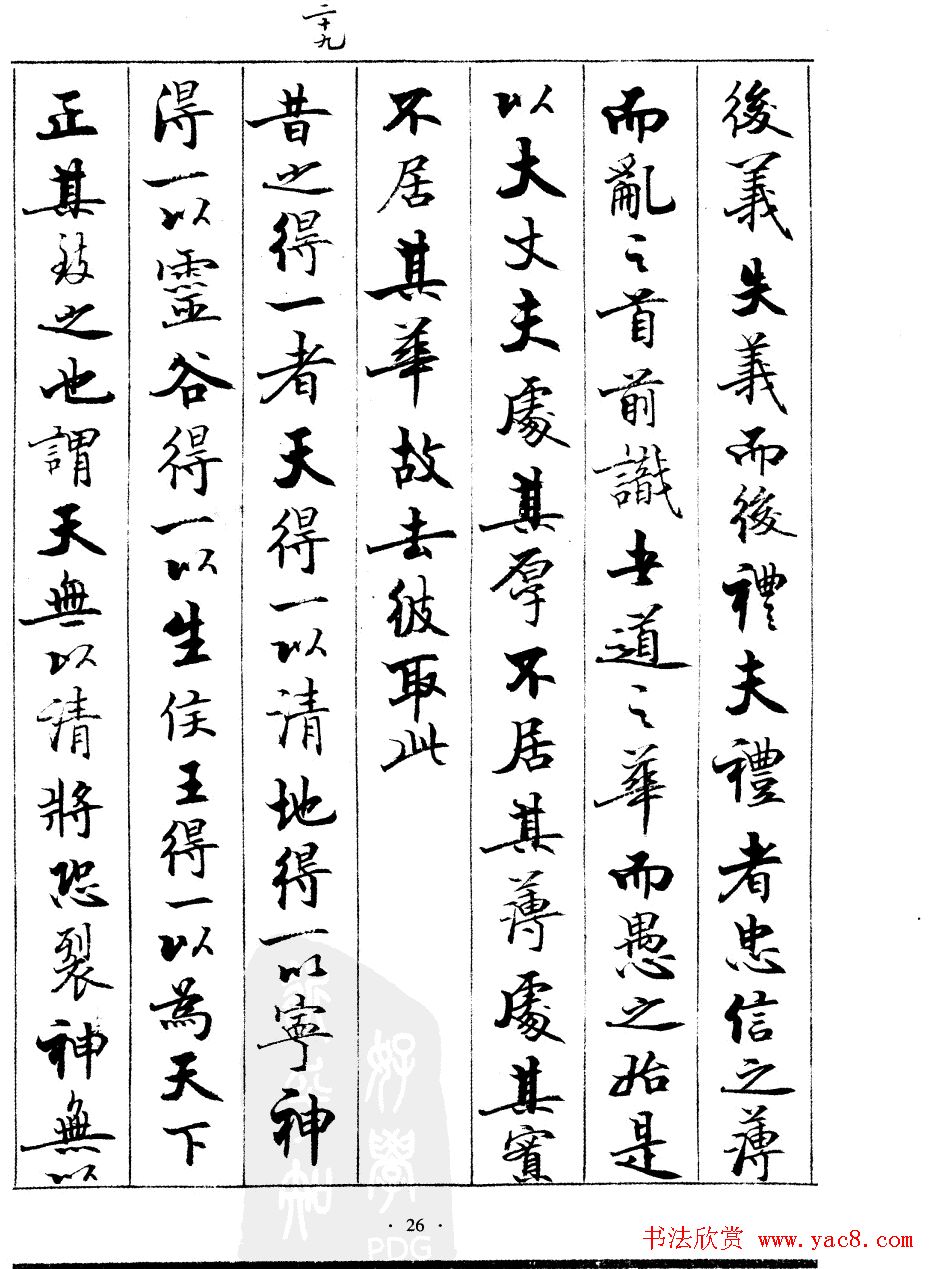 三十九
後義失義而後禮夫禮者忠信之薄
而亂之首前識者道之華而愚之始是
以大丈夫處其厚不居其薄處其實
不居其華故去彼取此
昔之得一者天得一以清地得一以寧神
得一以靈谷得一以生侯王得一以為天下
正其致之也謂天無以清將恐裂神無以
· 26 ·
PDG
书法欣赏 www.yac8.com